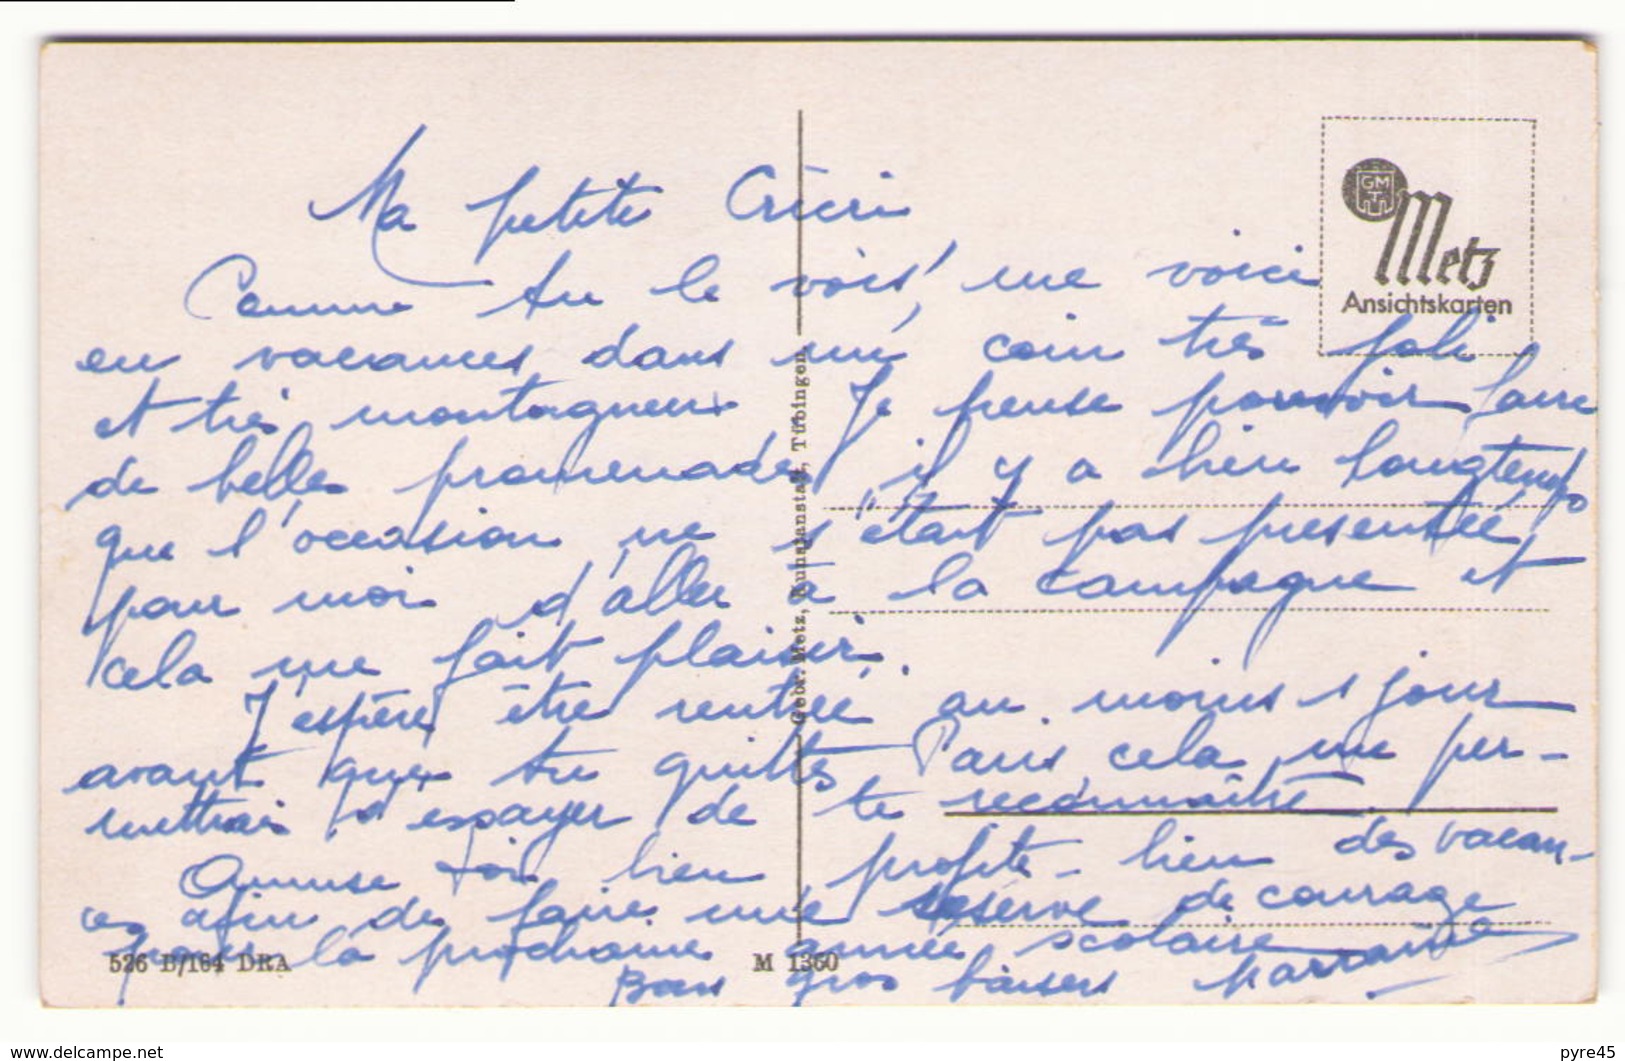 Ma petite Cricri
Comme tu le vois, me voici
en vacances dans un coin très joli
et très montagneux. Je pense pouvoir faire
de belles promenades, il y a bien longtemps
que l'occasion ne s'était pas présentée
pour moi d'aller à la campagne et
cela me fait plaisir.
J'espère être rentrée au moins 1 jour
avant que tu quittes Paris, cela me per-
mettrais d'essayer de te reconnaître.
Amuse toi bien profite bien des vacan-
ces afin de faire une réserve de courage
pour la prochaine année scolaire
Bons gros baisers Marraine
GMT
Metz
Ansichtskarten
Gebr. Metz, Kunstanstalt, Tübingen
526 B/164 DRA
M 1360
www.delcampe.net
pyre45